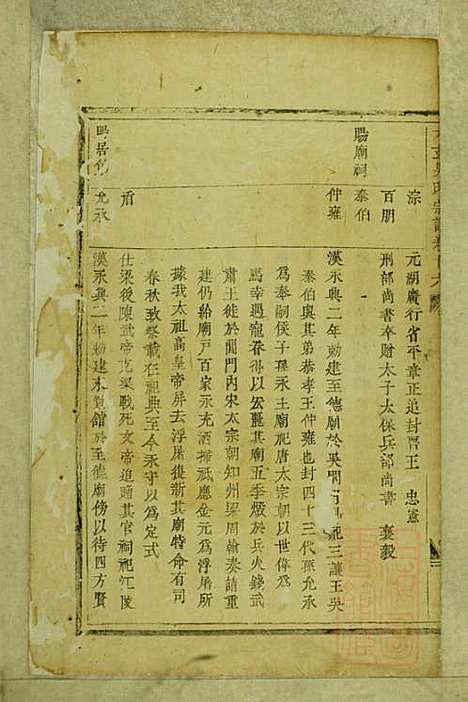 吳氏宗譜卷
淙　元湖廣行省平章正追封晋王　忠憲
百朋　刑部尚書卒贈太子太保兵部尚書　襄毅
賜廟祠
泰伯
仲雍　漢永興二年勅建至德廟於吳閶門　祀三讓王吳
泰伯與其弟恭孝王仲雍也封四十三代孫允承
為奉嗣侯子孫永主廟祀唐太宗朝以世偉為
馬幸遇寵眷得以宏麗其廟五季燬於兵火錢武
肅王徙於閶門內宋太宗朝知州梁周翰奏請重
建仍給廟戶百家永充洒掃祗應金元為浮屠所
據我太祖高皇帝屏去浮屠復新其廟特命有司
春秋致祭載在祀典至今永守以為定式
盾　仕梁後陳武帝克梁戰死文帝追贈其官祠祀江陵
賜居
允承　漢永興二年勅建木　館於至德廟傍以待四方賢